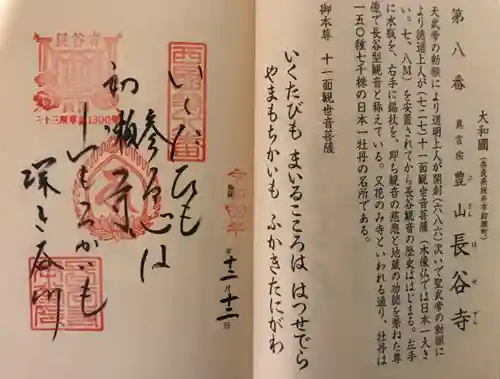 第八番
大和國（奈良県桜井市初瀬町）
真言宗 豊山長谷寺
ぶさんはせでら
天武帝の勅願により道明上人が開創（六八六）次いで聖武帝の勅願に
より徳道上人が（七二七）十一面観世音菩薩（木像仏では日本一大き
い。七、八M）を安置されてから長谷観音の歴史ははじまる。左手
に水瓶を、右手に錫杖を、即ち観音の慈悲と地蔵の功徳を兼ねた尊
像で長谷型観音と称えている。又花のみ寺といわれる通り、牡丹は
一五〇種七千株の日本一牡丹の名所である。
御本尊 十一面観世音菩薩
いくたびも まいるこころは はつせでら
やまもちかいも ふかきたにがわ
いくたびも
参る心は
初瀬寺
山もちかいも
深き谷川
令和四年
年十二月十二日
長谷寺
二十三所草創1300年